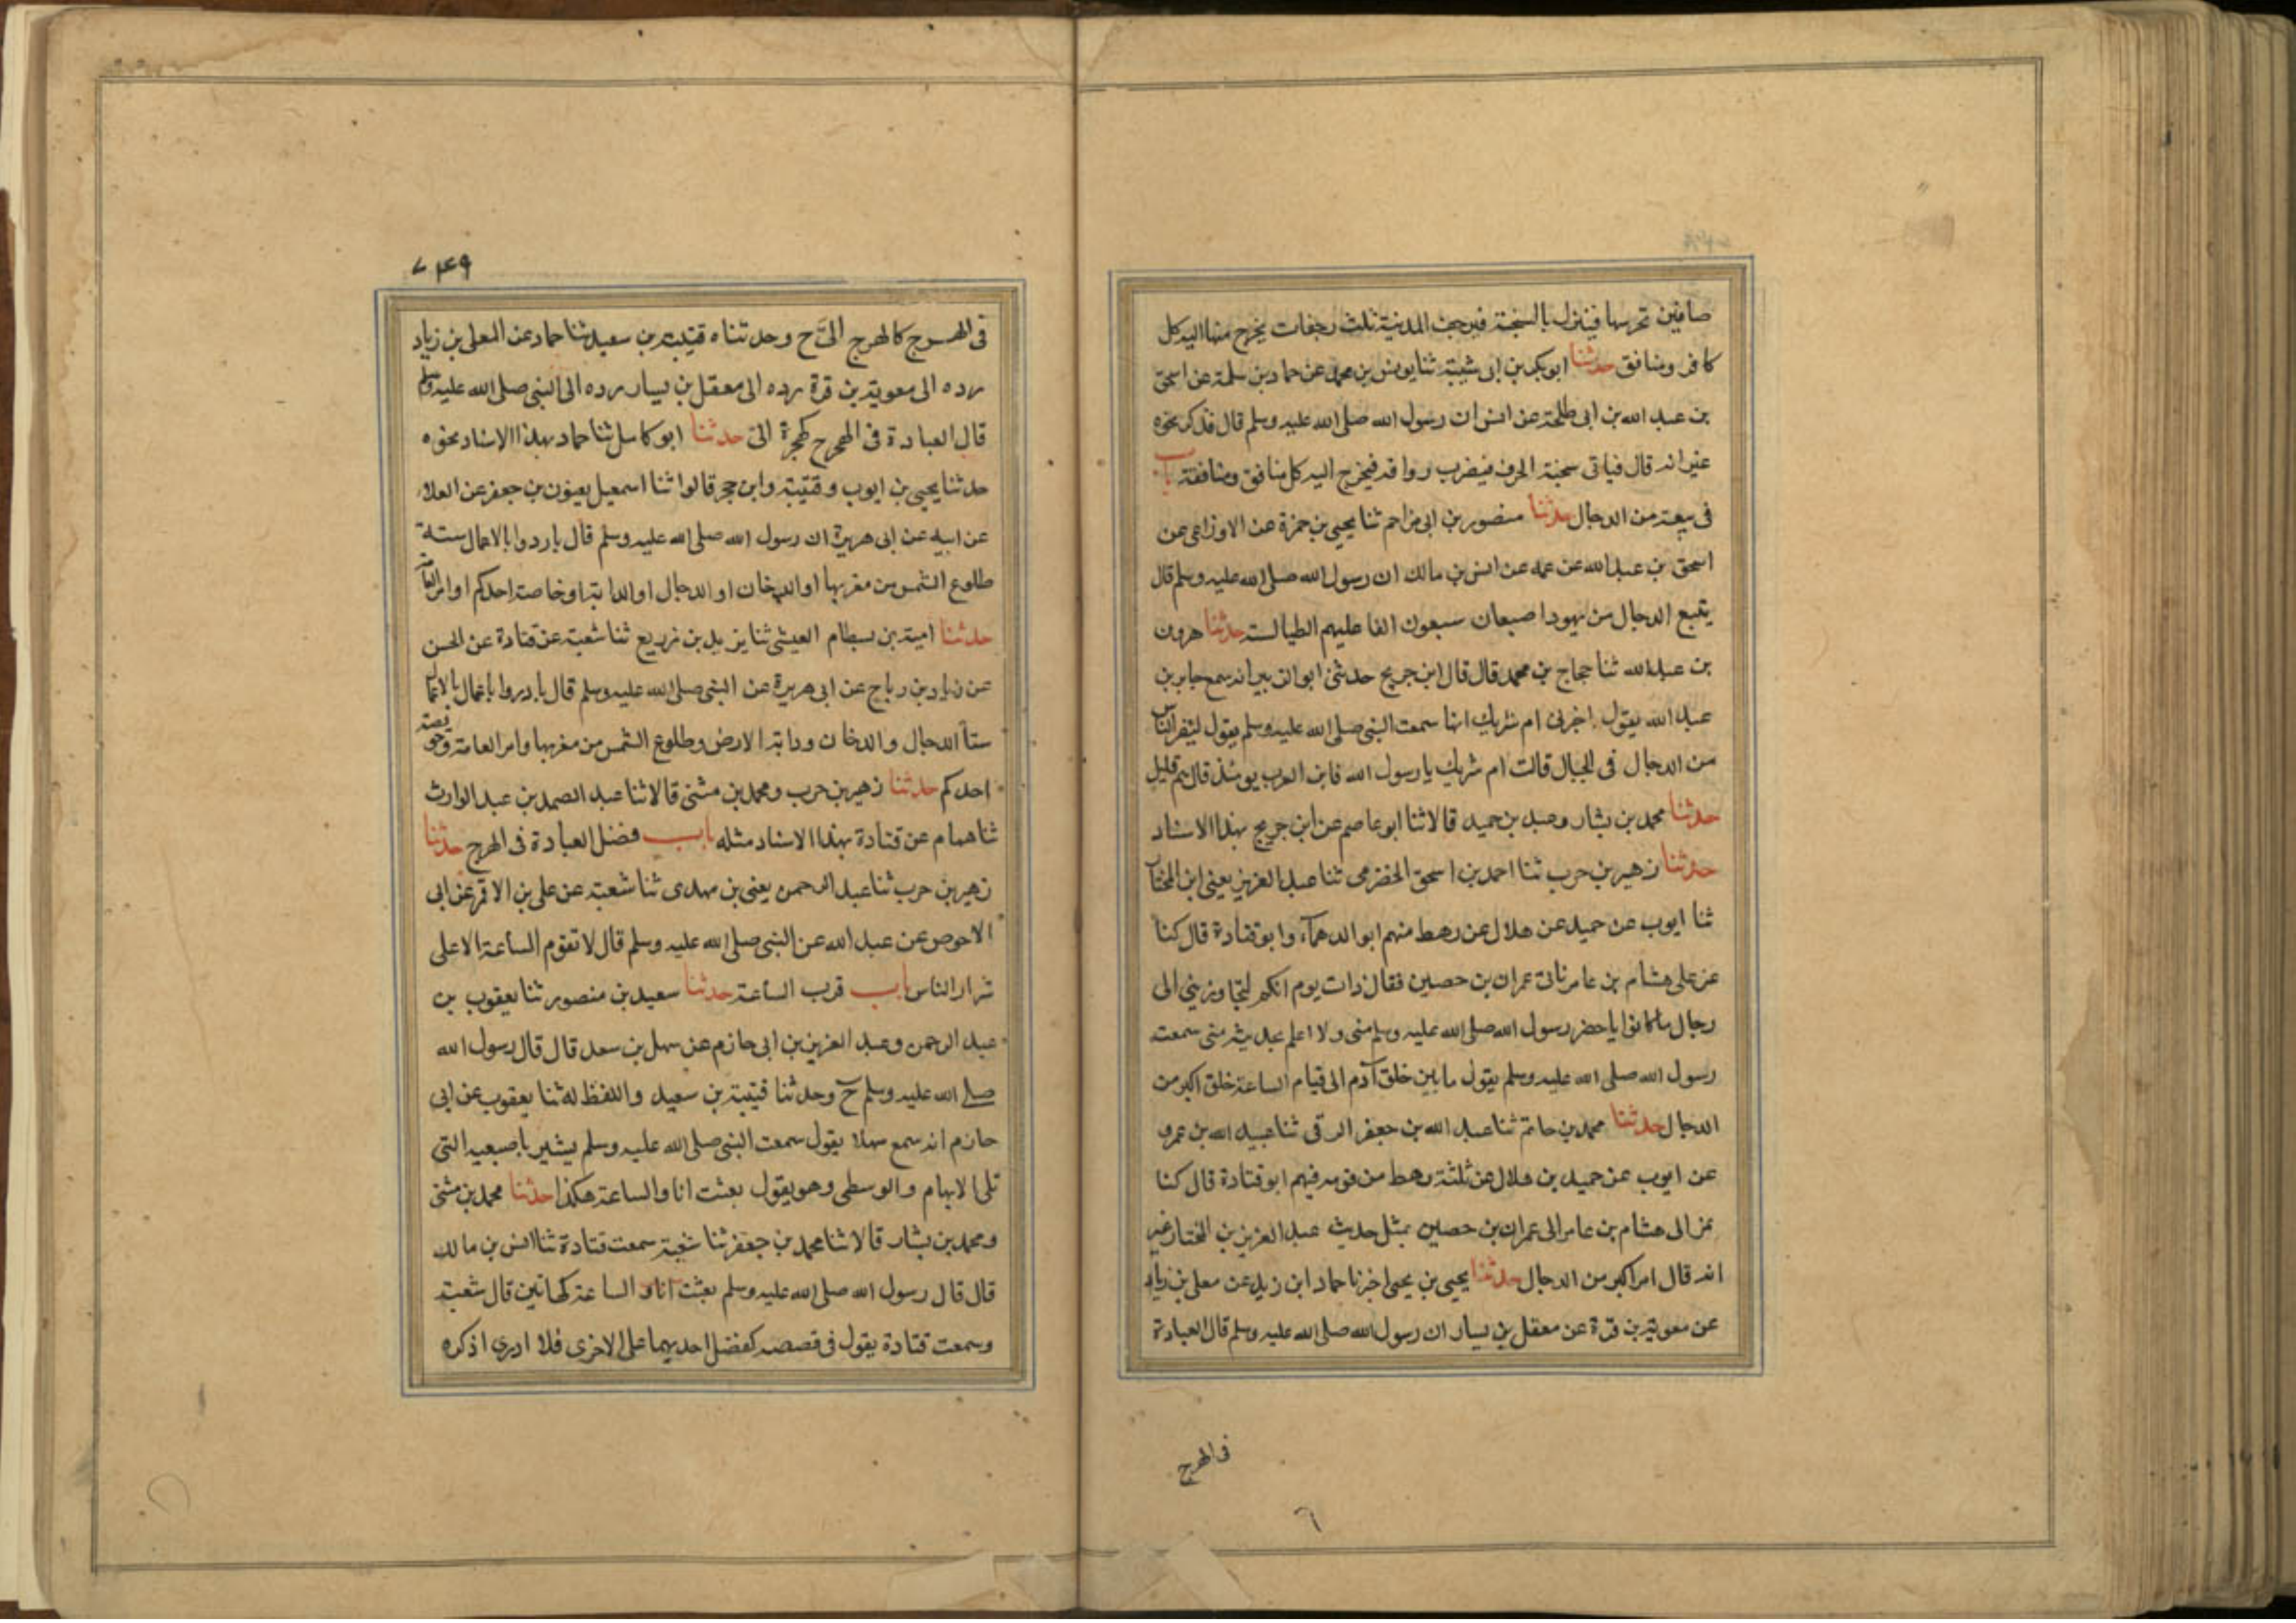 صافين تحرسها فينزل بالسبخة فيرجف المدينة ثلث رجفات يخرج منها اليه كل
كافر ومنافق حدثنا ابو بكر بن ابى شيبة ثنا يونس بن محمد عن حماد بن سلمة عن اسحق
بن عبد الله بن ابى طلحة عن انس ان رسول الله صلى الله عليه وسلم قال فذكر نحوه
غير انه قال فياتى سبخة الجرف فيضرب رواقه فيخرج اليه كل منافق ومنافقة باب
فى بقية من الدجال حدثنا منصور بن ابى مزاحم ثنا يحيى بن حمزة عن الاوزاعى عن
اسحق بن عبد الله عن عمه عن انس بن مالك ان رسول الله صلى الله عليه وسلم قال
يتبع الدجال من يهود اصبهان سبعون الفا عليهم الطيالسة حدثنا هرون
بن عبد الله ثنا حجاج بن محمد قال قال ابن جريج حدثنى ابو الزبير انه سمع جابر بن
عبد الله يقول اخبرنى ام شريك انها سمعت النبى صلى الله عليه وسلم يقول ليفرن الناس
من الدجال فى الجبال قالت ام شريك يا رسول الله فاين العرب يومئذ قال هم قليل
حدثنا محمد بن بشار وعبد بن حميد قالا ثنا ابو عاصم عن ابن جريج بهذا الاسناد
حدثنا زهير بن حرب ثنا احمد بن اسحق الحضرمى ثنا عبد العزيز يعنى ابن المختار
ثنا ايوب عن حميد بن هلال عن رهط منهم ابو الدهماء وابو قتادة قال كنا
نمر على هشام بن عامر ناتى عمران بن حصين فقال ذات يوم انكم لتجاوزينى الى
رجال ما كانوا باحضر رسول الله صلى الله عليه وسلم منى ولا اعلم بحديثه منى سمعت
رسول الله صلى الله عليه وسلم يقول ما بين خلق آدم الى قيام الساعة خلق اكبر من
الدجال حدثنا محمد بن حاتم ثنا عبد الله بن جعفر الرقى ثنا عبيد الله بن عمرو
عن ايوب عن حميد بن هلال عن ثلثة رهط من قومه فيهم ابو قتادة قال كنا
نمر الى هشام بن عامر الى عمران بن حصين بمثل حديث عبد العزيز بن المختار غير
انه قال امر اكبر من الدجال حدثنا يحيى بن يحيى اخبرنا حماد ابن زيد عن معلى بن زياد
عن معوية بن قرة عن معقل بن يسار ان رسول الله صلى الله عليه وسلم قال العبادة
فى الهرج
٦
٧٤٩
فى الهرج كالهرج الىّ ح وحدثناه قتيبة بن سعيد ثنا حماد عن المعلى بن زياد
رده الى معوية بن قرة رده الى معقل بن يسار رده الى النبى صلى الله عليه وسلم
قال العبادة فى الهرج كهجرة الىّ حدثنا ابو كامل ثنا حماد بهذا الاسناد نحوه
حدثنا يحيى بن ايوب وقتيبة وابن حجر قالوا ثنا اسمعيل يعنون بن جعفر عن العلاء
عن ابيه عن ابى هريرة ان رسول الله صلى الله عليه وسلم قال بادروا بالاعمال ستة
طلوع الشمس من مغربها او الدخان او الدجال او الدابة او خاصة احدكم او امر العامة
حدثنا امية بن بسطام العيشى ثنا يزيد بن زريع ثنا شعبة عن قتادة عن الحسن
عن زياد بن رباح عن ابى هريرة عن النبى صلى الله عليه وسلم قال بادروا بالاعمال
ستا الدجال والدخان ودابة الارض وطلوع الشمس من مغربها وامر العامة وخويصة
احدكم حدثنا زهير بن حرب ومحمد بن مثنى قالا ثنا عبد الصمد بن عبد الوارث
ثنا همام عن قتادة بهذا الاسناد مثله باب فضل العبادة فى الهرج حدثنا
زهير بن حرب ثنا عبد الرحمن يعنى بن مهدى ثنا شعبة عن على بن الاقمر عن ابى
الاحوص عن عبد الله عن النبى صلى الله عليه وسلم قال لا تقوم الساعة الا على
شرار الناس باب قرب الساعة حدثنا سعيد بن منصور ثنا يعقوب بن
عبد الرحمن وعبد العزيز بن ابى حازم عن سهل بن سعد قال قال رسول الله
صلى الله عليه وسلم ح وحدثنا قتيبة بن سعيد واللفظ له ثنا يعقوب عن ابى
حازم انه سمع سهلا يقول سمعت النبى صلى الله عليه وسلم يشير باصبعيه التى
تلى الابهام والوسطى وهو يقول بعثت انا والساعة هكذا حدثنا محمد بن مثنى
ومحمد بن بشار قالا ثنا محمد بن جعفر ثنا شعبة سمعت قتادة ثنا انس بن مالك
قال قال رسول الله صلى الله عليه وسلم بعثت انا والساعة كهاتين قال شعبة
وسمعت قتادة يقول فى قصصه كفضل احديهما على الاخرى فلا ادرى اذكره